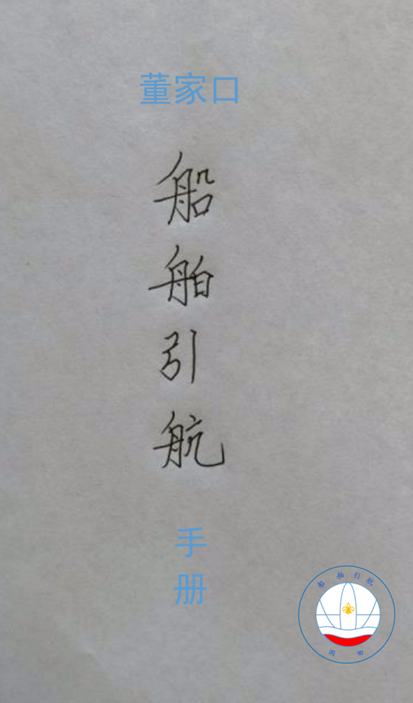 董家口
船
舶
引
航
手
册
船舶引航